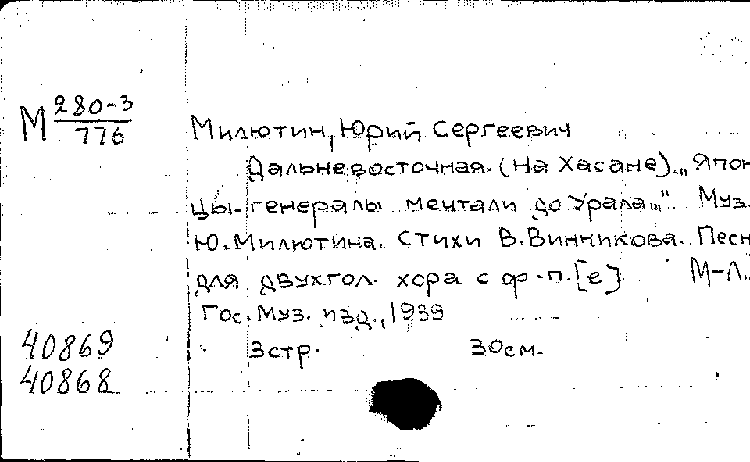 М 280-3
776
Милютин, Юрий Сергеевич
Дальневосточная. (На Хасане). „Япон
цы-генералы мечтали до Урала..." Муз.
Ю. Милютина. Стихи В. Винникова. Песн
для двухгол. хора с ф.-п. [e] М-Л.,
Гос. Муз. изд., 1939
3 стр. 30 см.
40869
40868